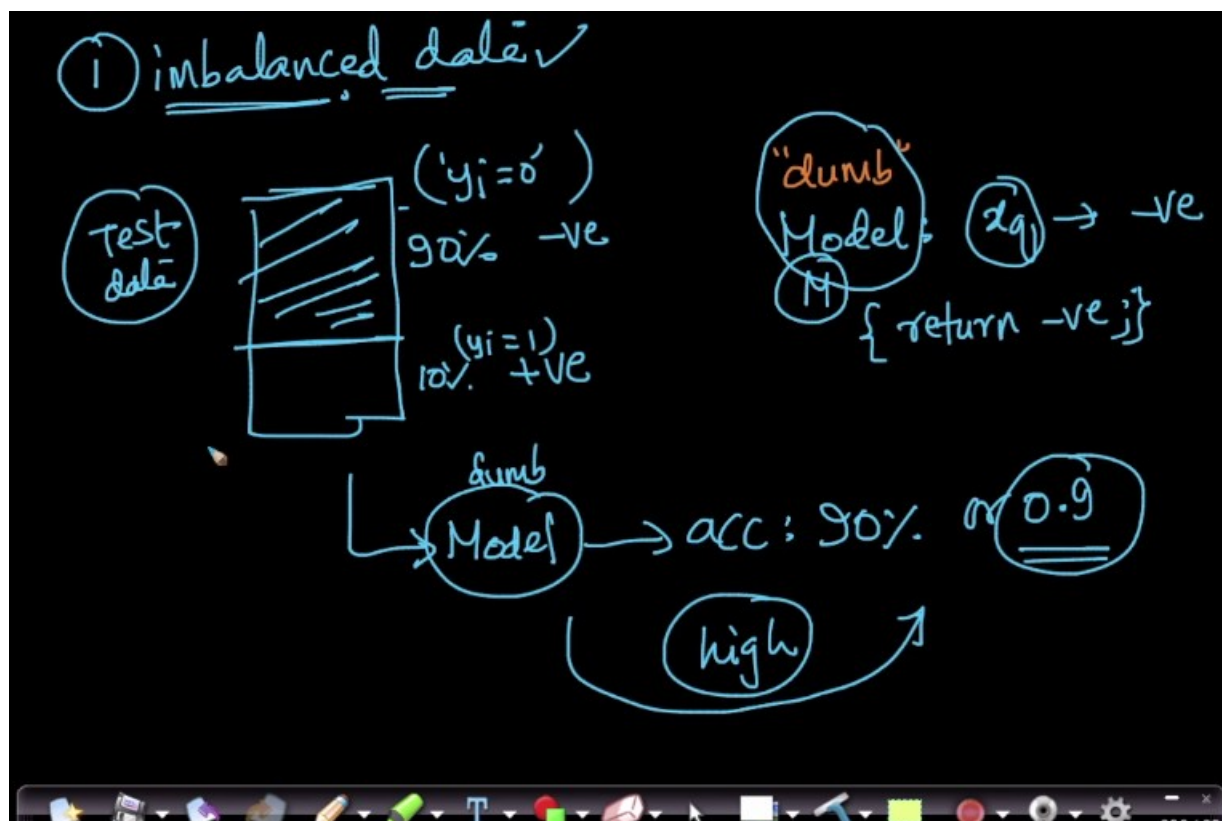 1 imbalanced data ✓
Test
data
('yi=0')
90% -ve
(yi=1)
10% +ve
"dumb"
Model: xq → -ve
M
{ return -ve; }
dumb
Model → acc: 90% or 0.9
high
T